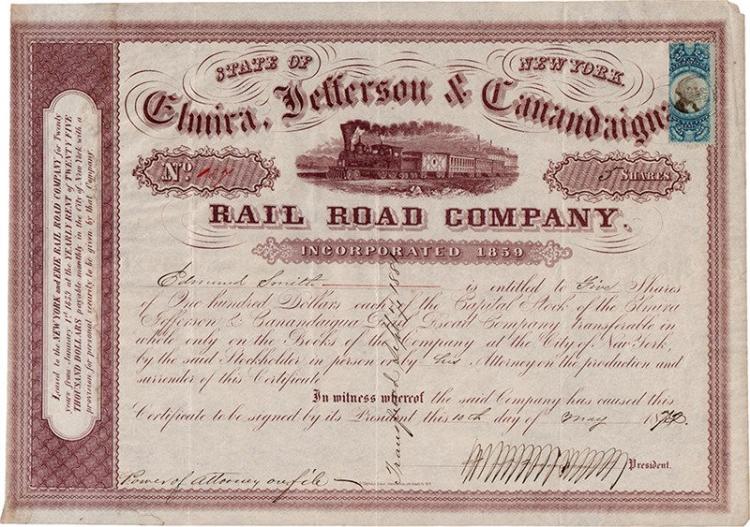 STATE OF NEW YORK.
Elmira, Jefferson & Canandaigua
No.
5 SHARES
RAIL ROAD COMPANY.
INCORPORATED 1859
Edmund Smith is entitled to Five Shares
of One hundred Dollars each of the Capital Stock of the Elmira
Jefferson & Canandaigua Rail Road Company transferable in
whole only on the Books of the Company at the City of New York,
by the said Stockholder in person or by his Attorney on the production and
surrender of this Certificate
In witness whereof the said Company has caused this
Certificate to be signed by its President this 10th day of May 18
President.
Power of Attorney on file
Transferred
Leased to the NEW YORK and ERIE RAIL ROAD COMPANY for Twenty
years from January 1st 1859 at the YEARLY RENT of TWENTY FIVE
THOUSAND DOLLARS payable monthly in the City of New York with a
provision for personal security to be given by that Company.